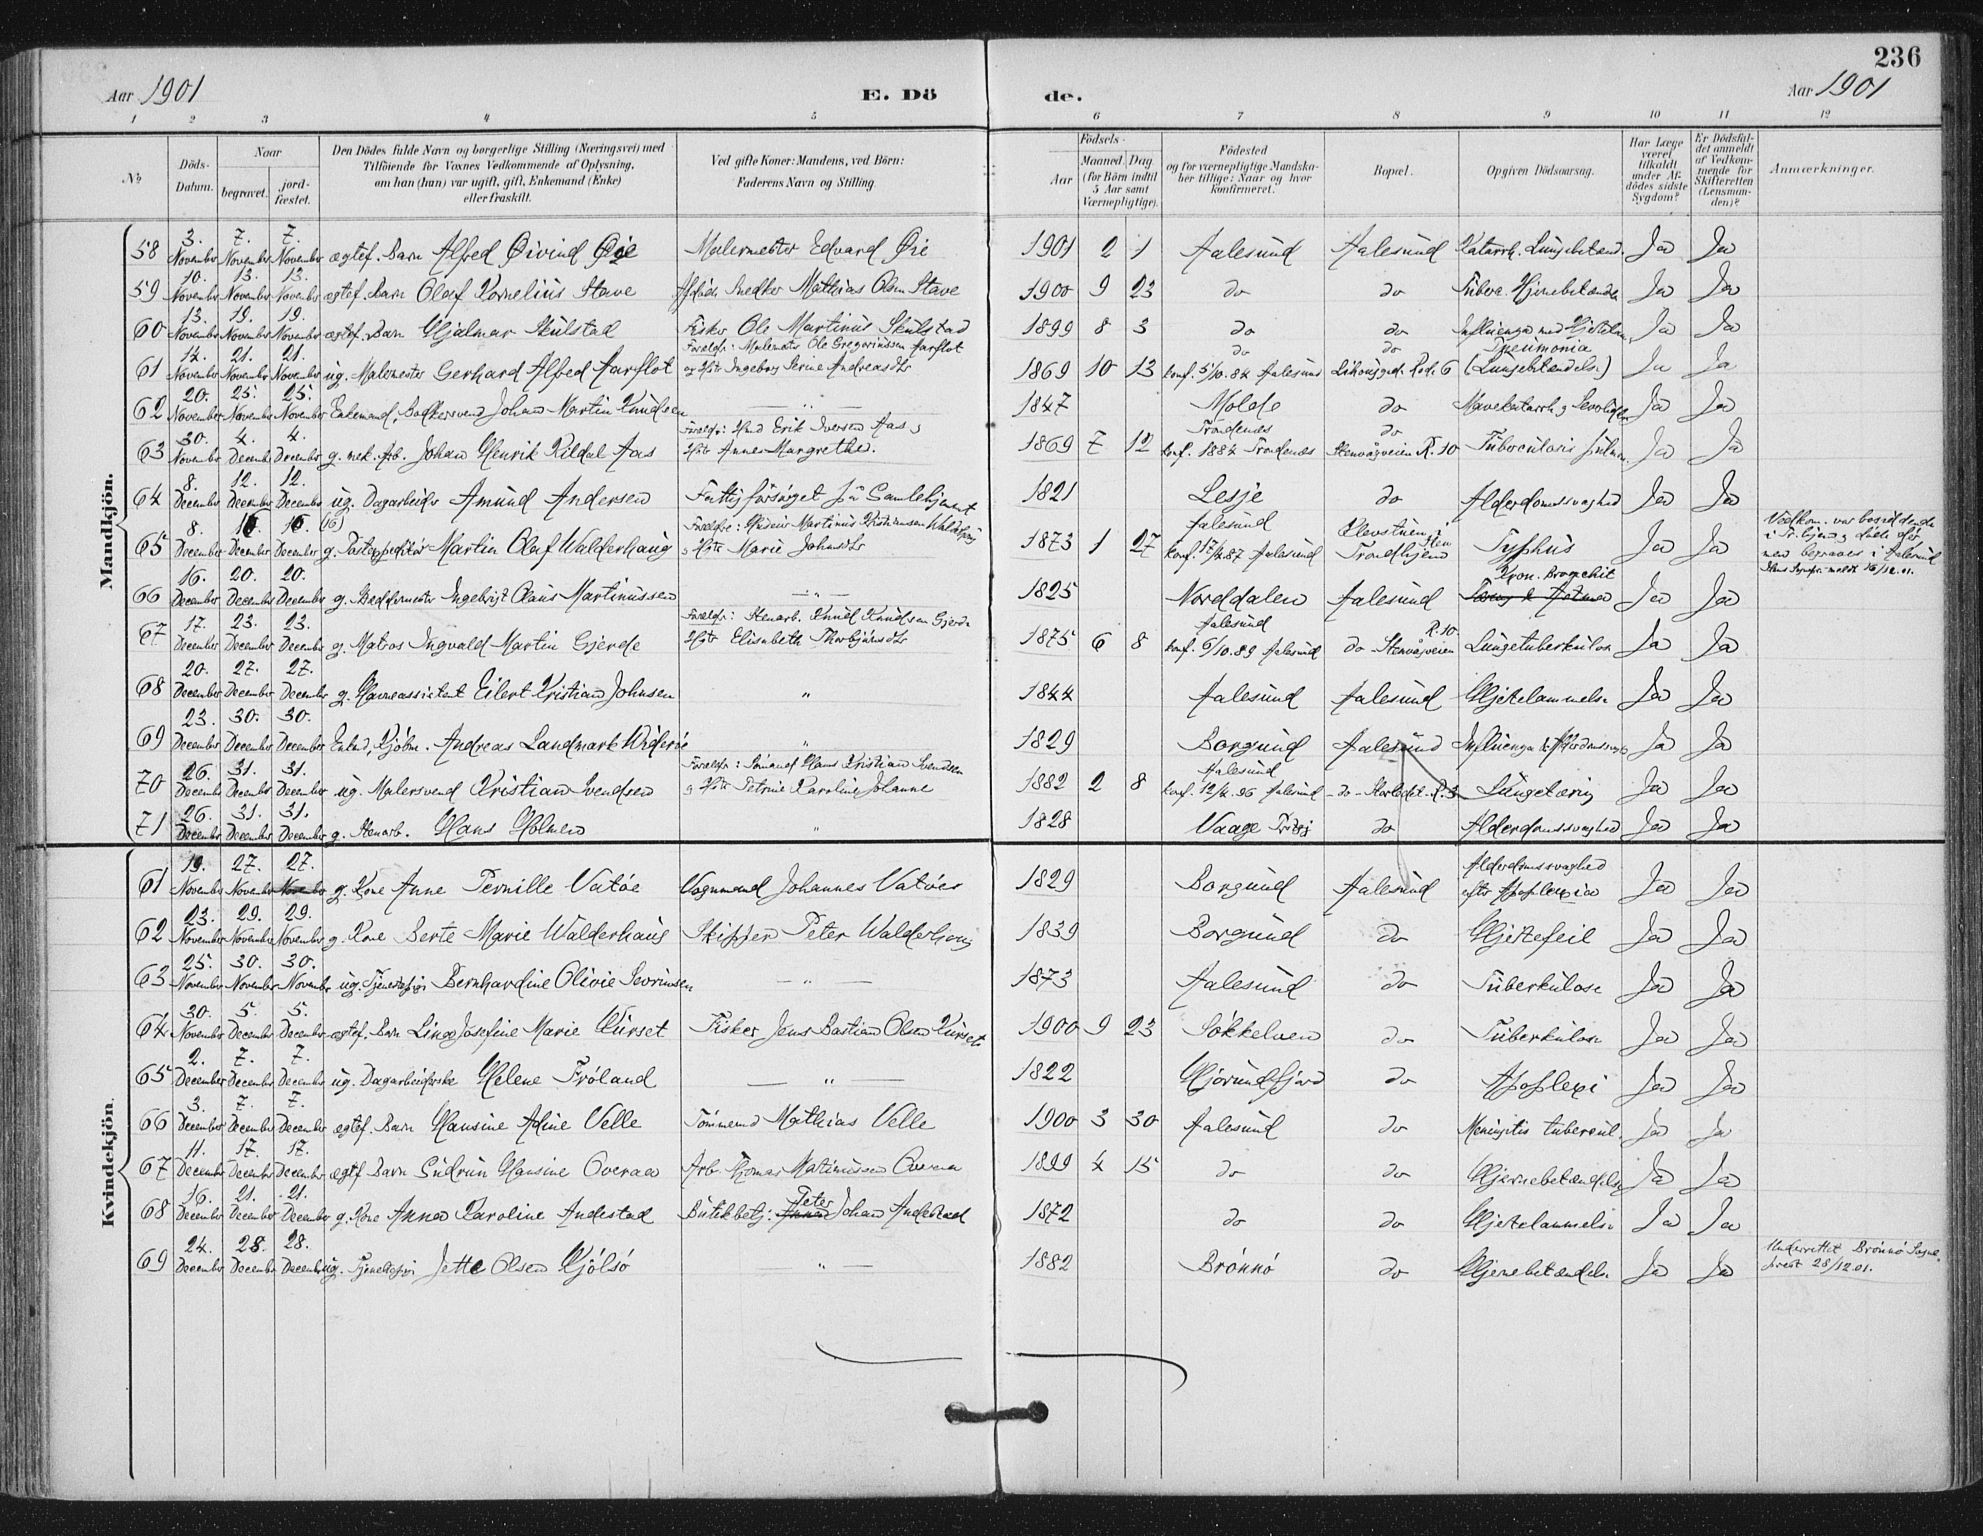 236
Aar 1901 E. Dö de. Aar 1901
1 2 3 4 5 6 7 8 9 10 11 12
№
Döds-Datum.
Naar
begravet.
jord-fæstet.
Den Dödes fulde Navn og borgerlige Stilling (Næringsvei) med
Tilföiende for Voxnes Vedkommende af Oplysning,
om han (hun) var ugift, gift, Enkemand (Enke)
eller fraskilt.
Ved gifte Koner: Mandens, ved Börn:
Faderens Navn og Stilling
Födsels-
Aar
Maaned. Dag
(for Börn indtil
5 Aar samt
Værnepligtige).
Födested
og for værnepligtige Mandska-
ber tillige: Naar og hvor
konfirmeret.
Bopæl.
Opgiven Dödsaarsag.
Har Læge
været
tilkaldt
under Af-
dödes sidste
Sygdom?
Er Dödsfal-
det anmeldt
af Vedkom-
mende for
Skifteretten
(Lensman-
den)?
Anmærkninger.
Mandkjön.
58 3. November 7. November 7. November ægtef. Barn Alfred Øivind Øie Malermester Edvard Øie 1901 2 1 Aalesund Aalesund Katarrh. Lungebetænd. Ja Ja
59 10. November 13. November 13. November ægtef. Barn Olaf Kornelius Stave Snedker Mathias Olsen Stave 1900 9 23 do do Ja Ja
60 13. November 19. November 19. November ægtef. Barn Hjalmar Skulstad Fisker Ole Martinus Skulstad 1899 8 3 do do Influenza med Ja Ja
61 14. November 21. November 21. November ug. Malermester Gerhard Alfred Aarflot Foreldr: Malermester Ole Gregoriussen Aarflot
og Hstr Ingeborg Serine Andreasdtr 1869 10 13 do konf. 5/10.84 Aalesund do Rode 6 Pneumonia (Lungebetændelse) Ja Ja
62 20. November 25. November 25. November Enkemand, Bødkersvend Johan Martin Knudsen — " — 1847 Molde do Mavekatarrh Ja Ja
63 30. November 4. December 4. December g. mek. Arb. Johan Henrik Rildal Aas Foreldr: Erik Iversen Aas
Hstr Anne Margrethe. 1869 7 12 Trondenæs konf. 1884 Trondenæs do Stenvågveien R. 10 Tuberculosis pulmon. Ja Ja
64 8. December 12. December 12. December ug. Dagarbeider Amund Andersen Fattigforsørget på Gamlehjemmet 1821 Lesje do Alderdomssvaghed Ja Ja
65 8. December 16. December 16. (16) December g. Postexpeditør Martin Olaf Walderhaug Foreldre: Martinus Kristiansen Walderhaug
og Hstr Marie Johnsdtr 1873 1 27 Aalesund konf. 17/4.87 Aalesund Trondhjem Typhus Ja Ja Vedkom. var bosiddende
i Tr.hjem og døde der
men begraves i Aalesund
66 16. December 20. December 20. December g. Bødkermester Ingebrigt Claus Martinussen — " — 1825 Norddalen Aalesund Kron. Bronchit Ja Ja
67 17. December 23. December 23. December g. Matros Ingvald Martin Gjerde Foreldr: Stenarb. Knud Knudsen Gjerde
Hstr Elisabeth 1875 6 8 Aalesund konf. 6/10.89 Aalesund do Stenvågveien R. 10 Lungetuberkulose Ja Ja
68 20. December 27. December 27. December g. Havneassistent Eilert Kristian Johnsen " 1844 Aalesund Aalesund Hjertelammelse Ja Ja
69 23. December 30. December 30. December Enkmd, Kjøbm. Andreas Landmark Widerøe " 1829 Borgund Aalesund Influenza & Alderdomssvagh. Ja Ja
70 26. December 31. December 31. December ug. Malersvend Kristian Svendsen Foreldr: Hans Kristian Svendsen
og Hstr Petrine Karoline Johanne 1882 2 8 Aalesund konf. 12/4.96 Aalesund do R. 3 Lungetæring Ja Ja
71 26. December 31. December 31. December g. Stenarb. Hans Holmen " 1828 Vaage do Alderdomssvaghed Ja Ja
Kvindekjön.
61 19. November 27. November 27. November g. Kone Anne Pernille Vatøe Vognmand Johannes Vatøe 1829 Borgund Aalesund Alderdomssvaghed
efter Apoplexia Ja Ja
62 23. November 29. November 29. November g. Kone Berte Marie Walderhaug Skipper Peter Walderhaug 1839 Borgund do Hjertefeil Ja Ja
63 25. November 30. November 30. November ug. Tjenestepige Bernhardine Olivie Sevrinsen — " — 1873 Aalesund do Tuberkulose Ja Ja
64 30. November 5. December 5. December ægtef. Barn Lina Josefine Marie Kurset Fisker Jens Bastian Olsen Kurseth 1900 9 23 Søkkelven do Tuberkulose Ja Ja
65 2. December 7. December 7. December ug. Dagarbeiderske Helene Frøland — " — 1822 Hjørundfjord do Apoplexi Ja Ja
66 3. December 7. December 7. December ægtef. Barn Hansine Adine Velle Tømmermd Mathias Velle 1900 3 30 Aalesund do Meningitis tubercul. Ja Ja
67 11. December 17. December 17. December ægtf Barn Gudrun Hansine Overaa Arb. Thomas Martinussen Overaa 1899 4 15 do do Hjernebetændelse Ja Ja
68 16. December 21. December 21. December g. Kone Anna Karoline Andestad Butikbetj. Peter Johan Andestad 1872 do do Hjertelammelse Ja Ja
69 24. December 28. December 28. December ug. Tjenestepige Jette Olsen Kjølsø " — 1882 Brønnø do Hjernebetændelse Ja Ja Underrettet Brønnø Sogne-
prest 28/12.01.